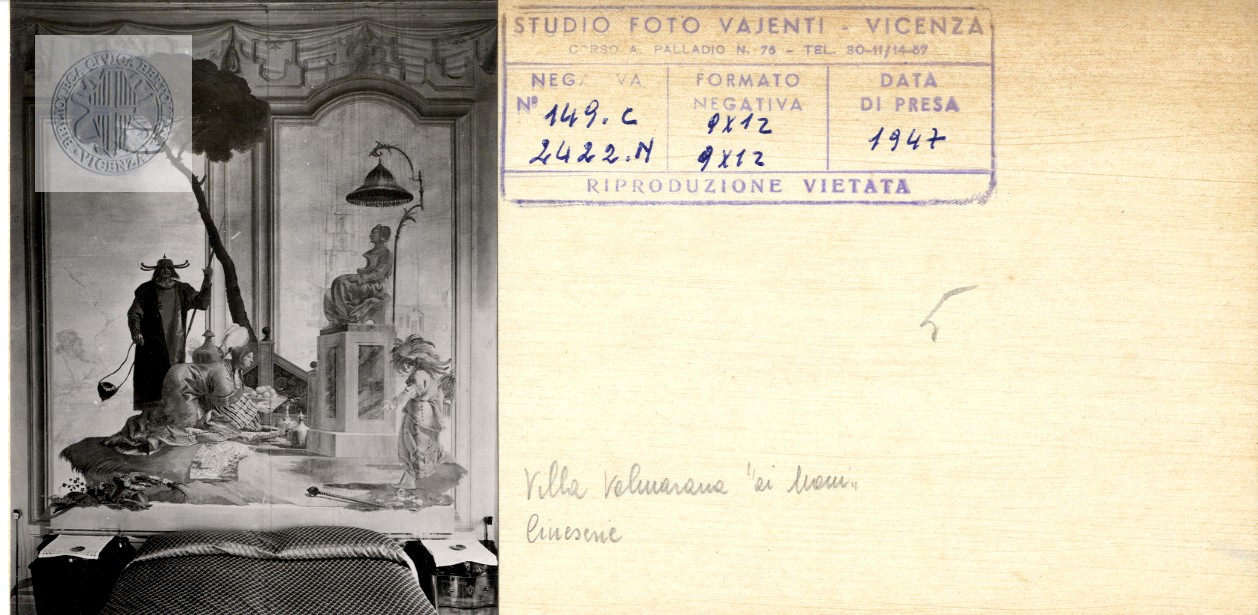 BIBLIOTECA CIVICA BERTOLIANA · VICENZA ·
STUDIO FOTO VAJENTI - VICENZA
CORSO A. PALLADIO N. 76 - TEL. 30-11/14-87
NEGA VA
Nº 149.C
2422.N
FORMATO
NEGATIVA
9X12
9X12
DATA
DI PRESA
1947
RIPRODUZIONE VIETATA
5
Villa Valmarana "ai Nani"
Cineserie